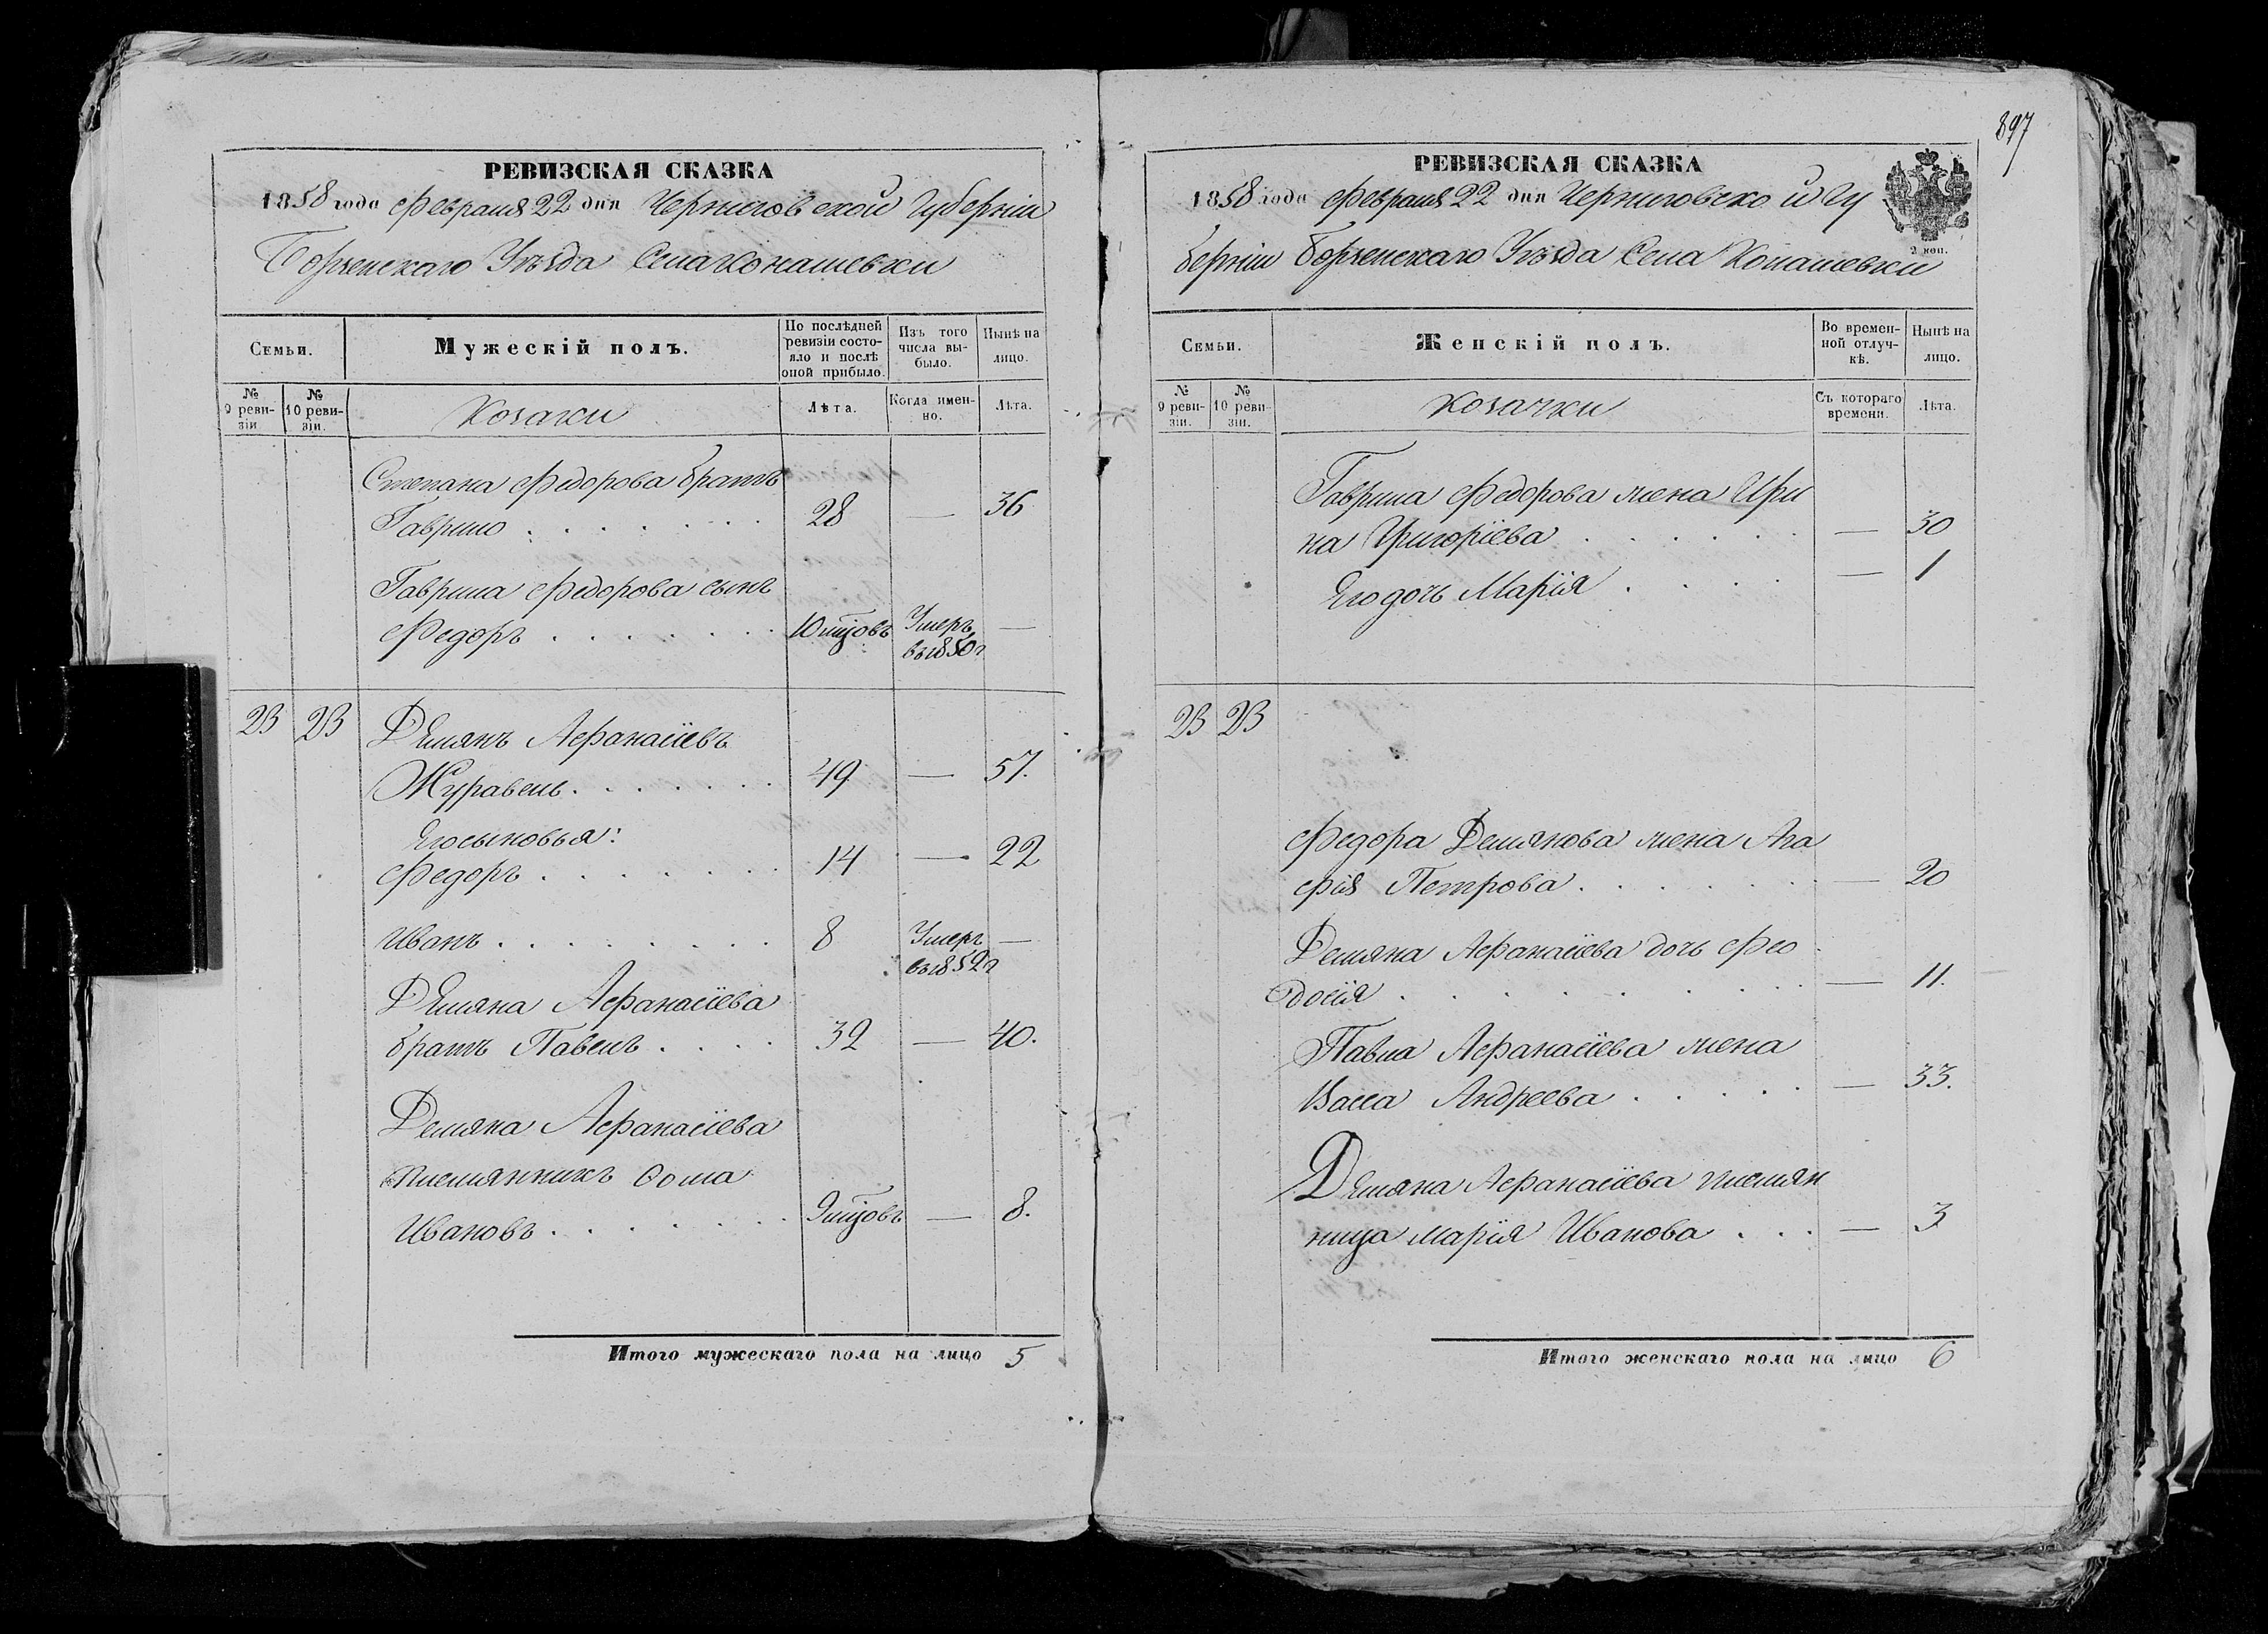 897
РЕВИЗСКАЯ СКАЗКА
1858 года Февраля 22 дня Черниговской Губерніи
Борзенскаго Уѣзда Села Конашевки
Семьи.
Мужескій полъ.
По послѣдней ревизіи состояло и послѣ оной прибыло.
Изъ того числа выбыло.
Нынѣ на лицо.
№ 9 ревизіи
№ 10 ревизіи.
Козаки
Лѣта.
Когда именно.
Лѣта.
Степана Федорова братъ
Гаврило . . . . . . . 28 — 36
Гаврила Федорова сынъ
Федоръ . . . . . . . 10 мцовъ Умеръ въ 1850 г —
23 23 Демянъ Афанасіевъ
Журавель . . . . . . . 49 — 57.
Его сыновья:
Федоръ . . . . . . . 14 — 22
Иванъ . . . . . . . . 8 Умеръ въ 1852 г —
Демяна Афанасіева
братъ Павелъ . . . . 32 — 40.
Демяна Афанасіева
племянникъ Фома
Ивановъ . . . . . . . 9 мцовъ — 8.
Итого мужескаго пола на лицо 5
РЕВИЗСКАЯ СКАЗКА
1858 года Февраля 22 дня Черниговской Гу
2 коп.
берніи Борзенскаго Уѣзда Села Конашевки
Семьи.
Женскій полъ.
Во временной отлучкѣ.
Нынѣ на лицо.
№ 9 ревизіи.
№ 10 ревизіи.
Козачки
Съ котораго времени.
Лѣта.
Гаврила Федорова жена Ири
на Григоріева . . . . . . — 30
Его дочь Марія . . . . — 1
23 23
Федора Демянова жена Ага
фія Петрова . . . . . . — 20
Демяна Афанасіева дочь Фео
досія . . . . . . . . . — 11.
Павла Афанасіева жена
Васса Андреева . . . . . — 33.
Демяна Афанасіева племян
ница Марія Иванова . . . — 3
Итого женскаго пола на лицо 6